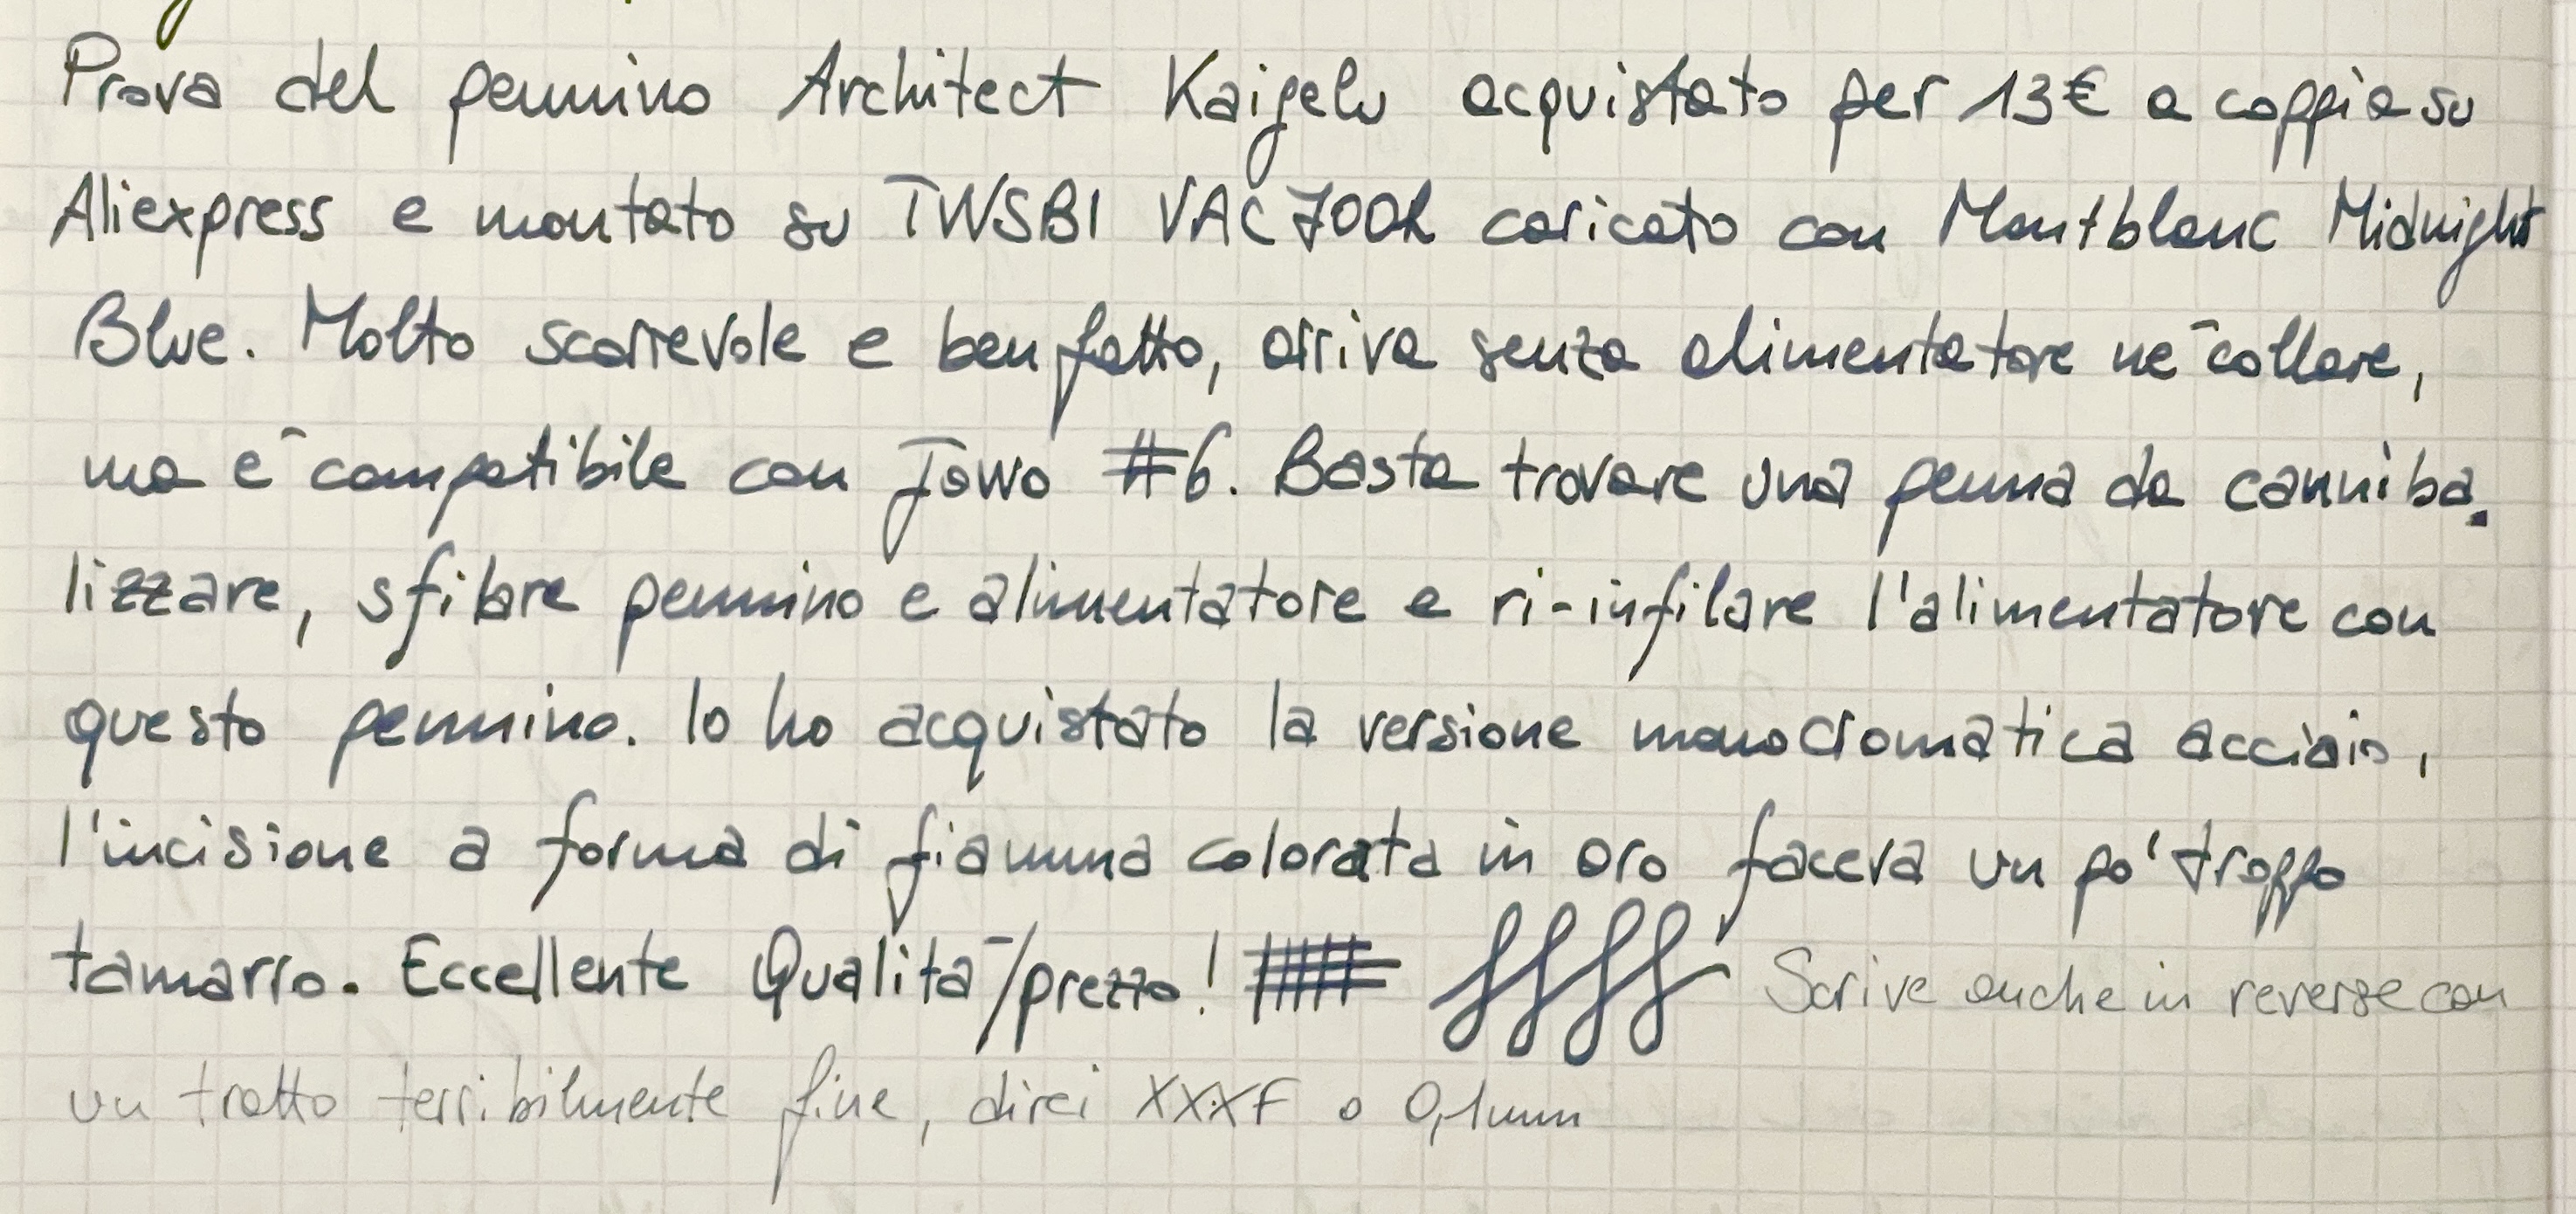 Prova del pennino Architect Kaigelu acquistato per 13€ a coppia su
Aliexpress e montato su TWSBI VAC700R caricato con Montblanc Midnight
Blue. Molto scorrevole e ben fatto, arriva senza alimentatore né collare,
ma è compatibile con Jowo #6. Basta trovare una penna da canniba-
lizzare, sfilare pennino e alimentatore e ri-infilare l'alimentatore con
questo pennino. Io ho acquistato la versione monocromatica acciaio,
l'incisione a forma di fiamma colorata in oro faceva un po' troppo
tamarro. Eccellente Qualità/prezzo! Scrive anche in reverse con
un tratto terribilmente fine, direi XXXF o 0,1mm